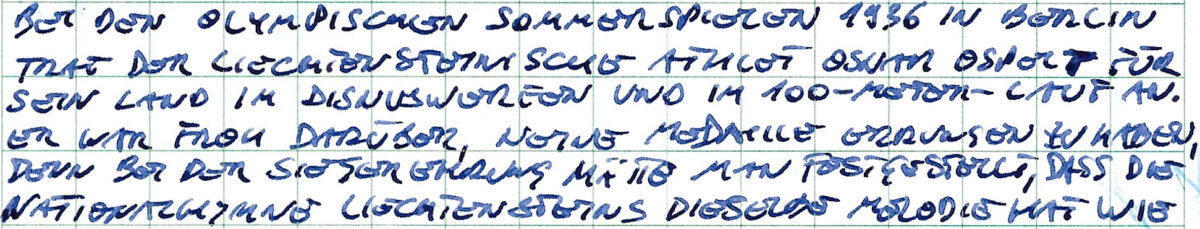 BEI DEN OLYMPISCHEN SOMMERSPIELEN 1936 IN BERLIN
TRAT DER LIECHTENSTEINISCHE ATHLET OSKAR OSPELT FÜR
SEIN LAND IM DISKUSWERFEN UND IM 100-METER-LAUF AN.
ER WAR FROH DARÜBER, KEINE MEDAILLE ERRUNGEN ZU HABEN,
DENN BEI DER SIEGEREHRUNG HÄTTE MAN FESTGESTELLT, DASS DIE
NATIONALHYMNE LIECHTENSTEINS DIESELBE MELODIE HAT WIE